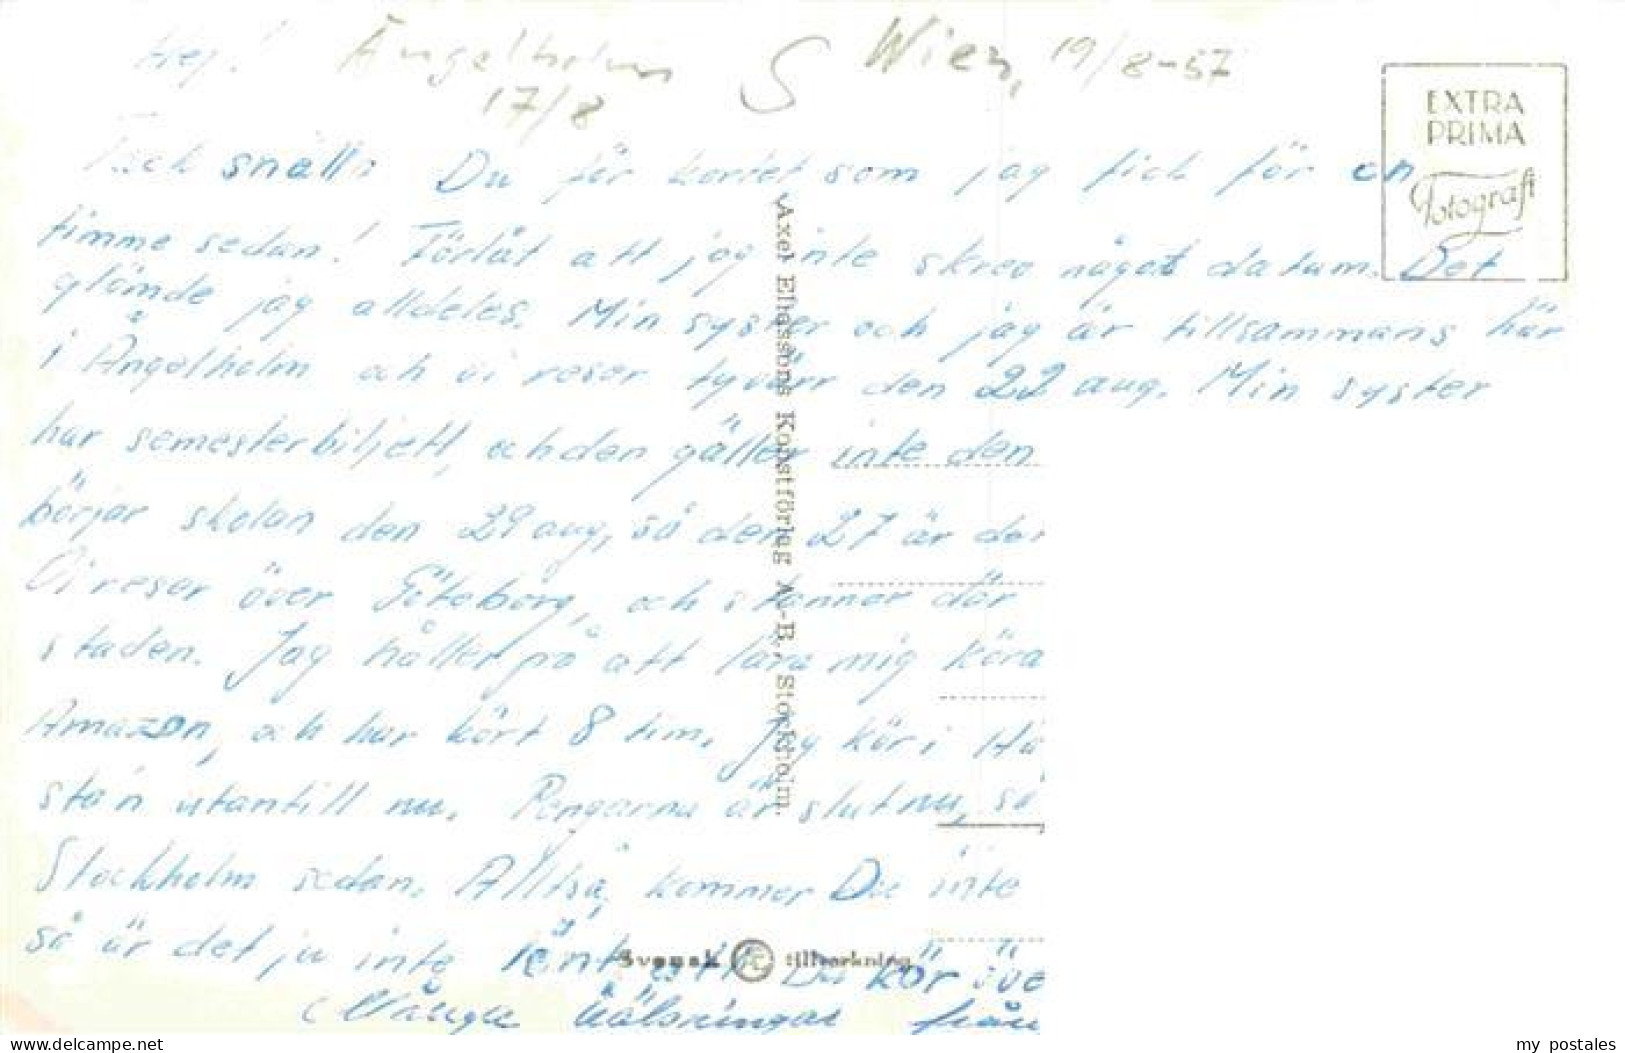 Hej! Ängelholm S Wien, 19/8-57
17/8
EXTRA
PRIMA
Fotografi
Tack snälla Du för kortet som jag fick för en
timme sedan! Förlåt att jag inte skrev något datum. Det
glömde jag alldeles. Min syster och jag är tillsammans här
i Ängelholm och vi reser tyvärr den 22 aug. Min syster
har semesterbiljett, och den gäller inte den
börjar skolan den 29 aug, så den 27 är der
Vi reser över Göteborg, och stannar där
staden. Jag håller på att lära mig köra
Amazon, och har kört 8 tim. Jag kör i Hä
stan utantill nu. Pengarna är slut nu, så
Stockholm sedan. Alltså, kommer Du inte
så är det ju inte Du kör öve
Många hälsningar från
Axel Eliassons Konstförlag A.-B. Stockholm.
Svensk tillverkning
my_postales
www.delcampe.net